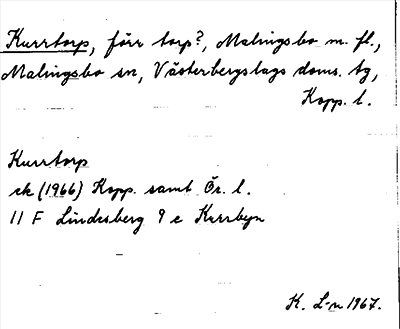 Kurrtorp, förr torp?, Malingsbo m. fl.,
Malingsbo sn, Västerbergslags doms. tg,
Kopp. l.
Kurrtorp
ek (1966) Kopp. samt Ör. l.
11 F Lindesberg 9 e Kurrbyn
K. L-n 1967.